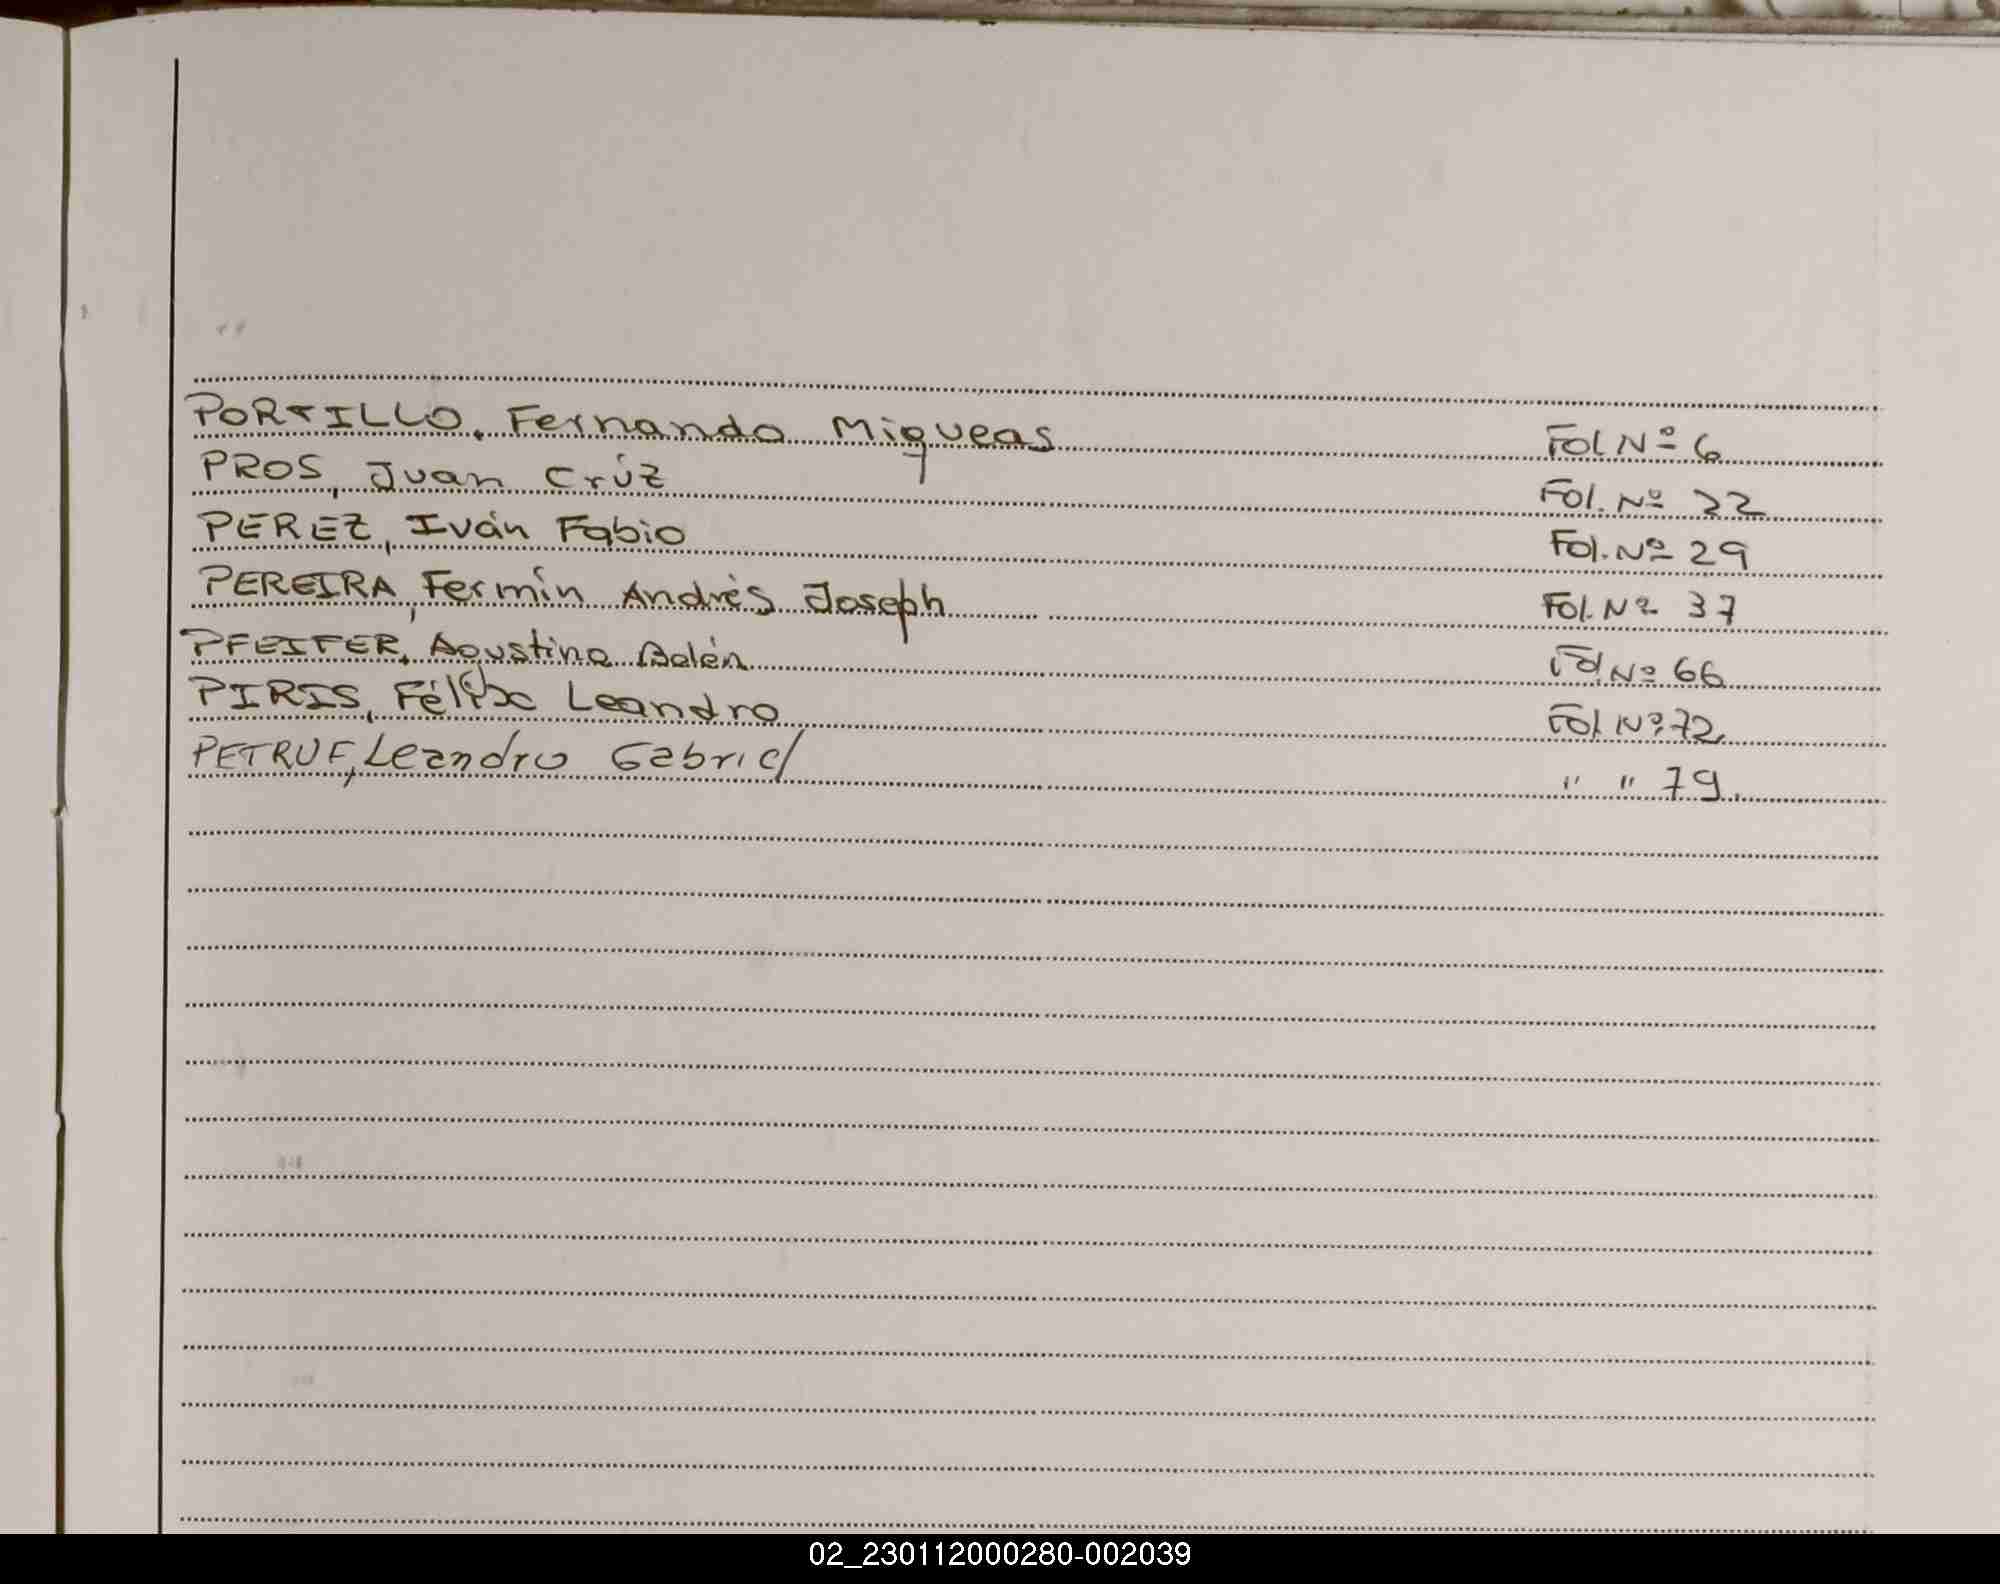 PORTILLO, Fernando Miqueas Fol Nº 6
PROS, Juan Crúz Fol. Nº 22
PEREZ, Iván Fabio Fol. Nº 29
PEREIRA, Fermín Andrés Joseph Fol. Nº 37
PFEIFER, Agustina Belén Fol. Nº 66
PIRIS, Félix Leandro Fol. Nº 72
PETRUF, Leandro Gabriel " " 79.
02_230112000280-002039